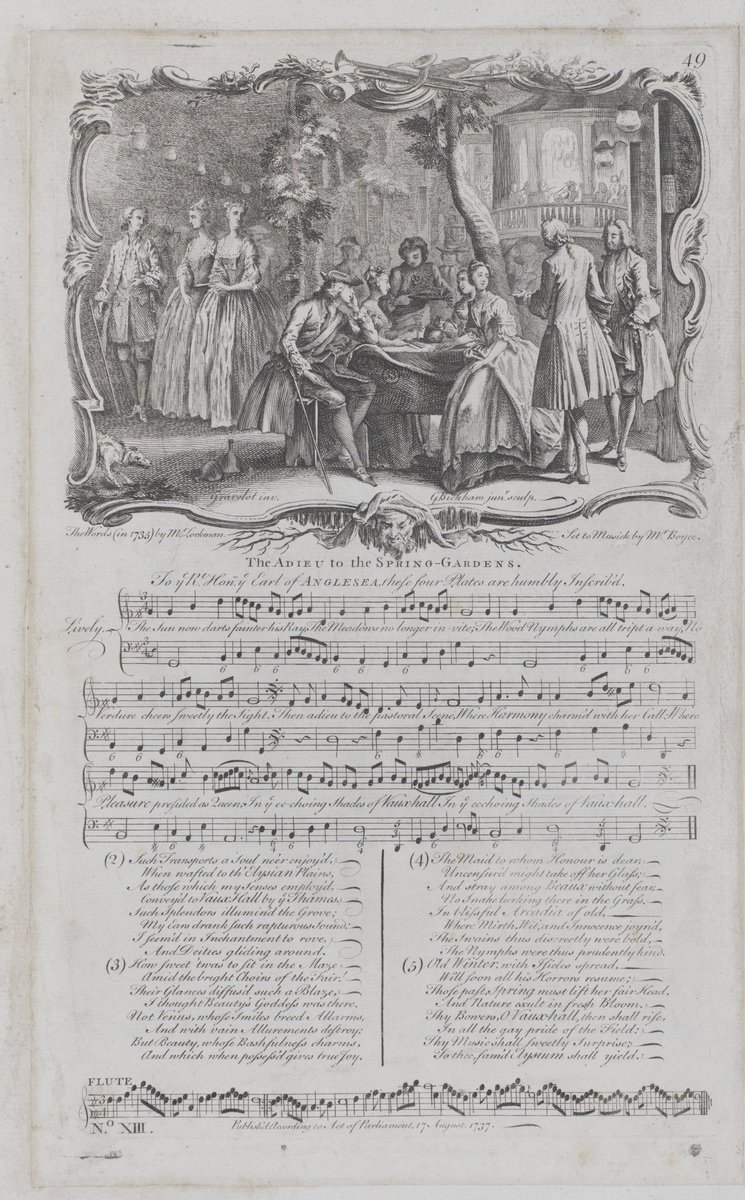 49
Gravelot inv.
G. Bickham junr. sculp.
The Words (in 1735) by Mr. Lockman.
Set to Musick by Mr. Boyce.
The ADIEU to the SPRING-GARDENS.
To ye Rt. Honble. ye Earl of ANGLESEA, these four Plates are humbly Inscrib'd.
Lively
The Sun now darts fainter his Ray, The Meadows no longer in vite; The Wood Nymphs are all tript a way, No
Verdure cheers sweetly the Sight. Then adieu to the pastoral Scene, Where Harmony charm'd with her Call; Where
Pleasure presided as Queen, In ye ec-choing Shades of Vauxhall. In ye ecchoing Shades of Vauxhall.
(2) Such Transports a Soul ne'er enjoy'd,
When wafted to th' Elysian Plains,
As those which my Senses employ'd,
Convey'd to VAUX HALL by ye Thames,
Such Splendors illumin'd the Grove;
My Ears drank such rapturous Sound:
I seem'd in Inchantment to rove,
And Deities gliding around.
(3) How sweet 'twas to sit in the Maze
Amid the bright Choirs of the Fair,
Their Glances diffus'd such a Blaze,
I thought Beauty's Goddess was there.
Not Venus, whose Smiles breed Allarms,
And with vain Allurements destroy;
But Beauty, whose Bashfulness charms,
And which when possess'd gives true Joy.
(4) The Maid to whom Honour is dear,
Uncensur'd might take off her Glass;
And stray among Beaux without fear,
No Snake lurking there in the Grass.
In blissful Arcadia of old,
Where Mirth, Wit, and Innocence joyn'd,
The Swains thus discreetly were bold,
The Nymphs were thus prudently kind.
(5) Old Winter, with Isicles spread,
Will soon all his Horrors resume;
Those past, Spring must lift her fair Head,
And Nature exult in fresh Bloom.
Thy Bowers, O Vauxhall, then shall rise,
In all the gay pride of the Field:
Thy Music shall sweetly Surprise;
To thee, fam'd Elysium shall yield.
FLUTE
No. XIII.
Publish'd According to Act of Parliament, 17 August. 1737.